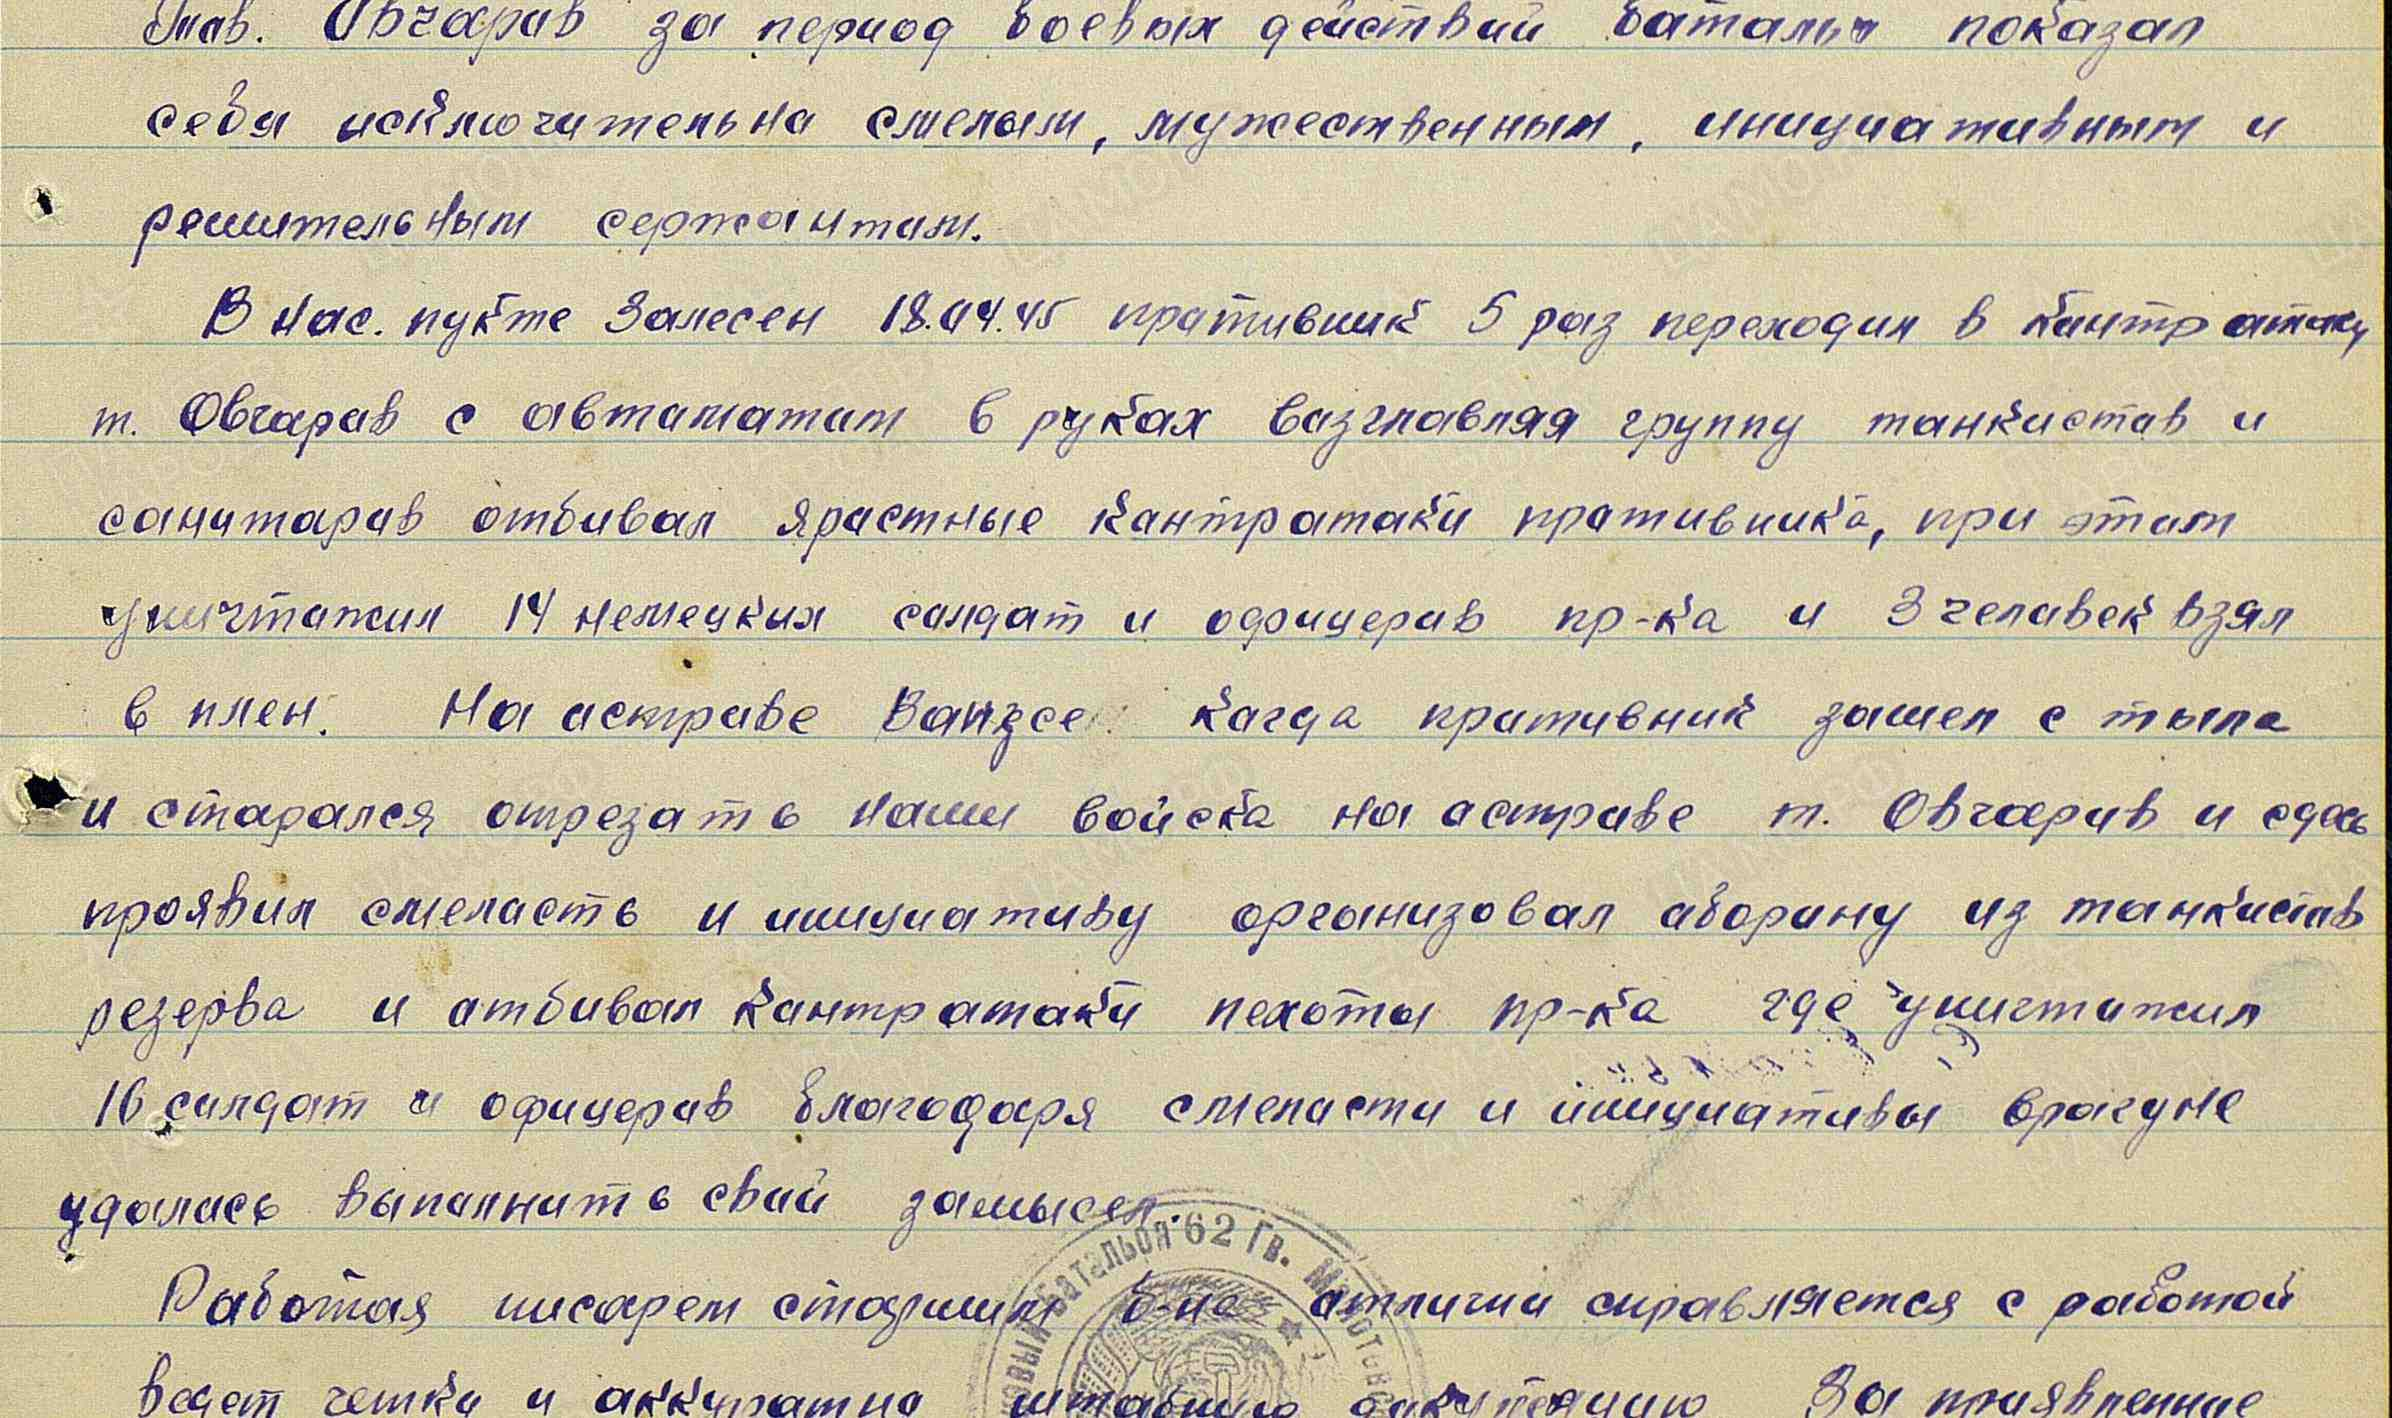 Тов. Овчаров за период боевых действий баталья показал
себя исключительно смелым, мужественным, инициативным и
решительным сержантом.
В нас. пукте Залесен 18.04.45 противник 5 раз переходил в контратаку
т. Овчаров с автоматом в руках возглавляя группу танкистов и
санитаров отбивал яростные контратаки противника, при этом
уничтожил 14 немецких солдат и офицеров пр-ка и 3 человек взял
в плен. На острове Ванзее когда противник зашел с тыла
и старался отрезать наши войска на острове т. Овчаров и здесь
проявил смелость и инициативу организовал оборону из танкистов
резерва и отбивал контратаки пехоты пр-ка где уничтожил
16 солдат и офицеров благодаря смелости и инициативы врагу не
удалась выполнить свой замысел.
Работая писарем старшим б-на отлично справляется с работой
ведет четко и аккуратно штабную документацию За проявленные
батальон 62 Гв.